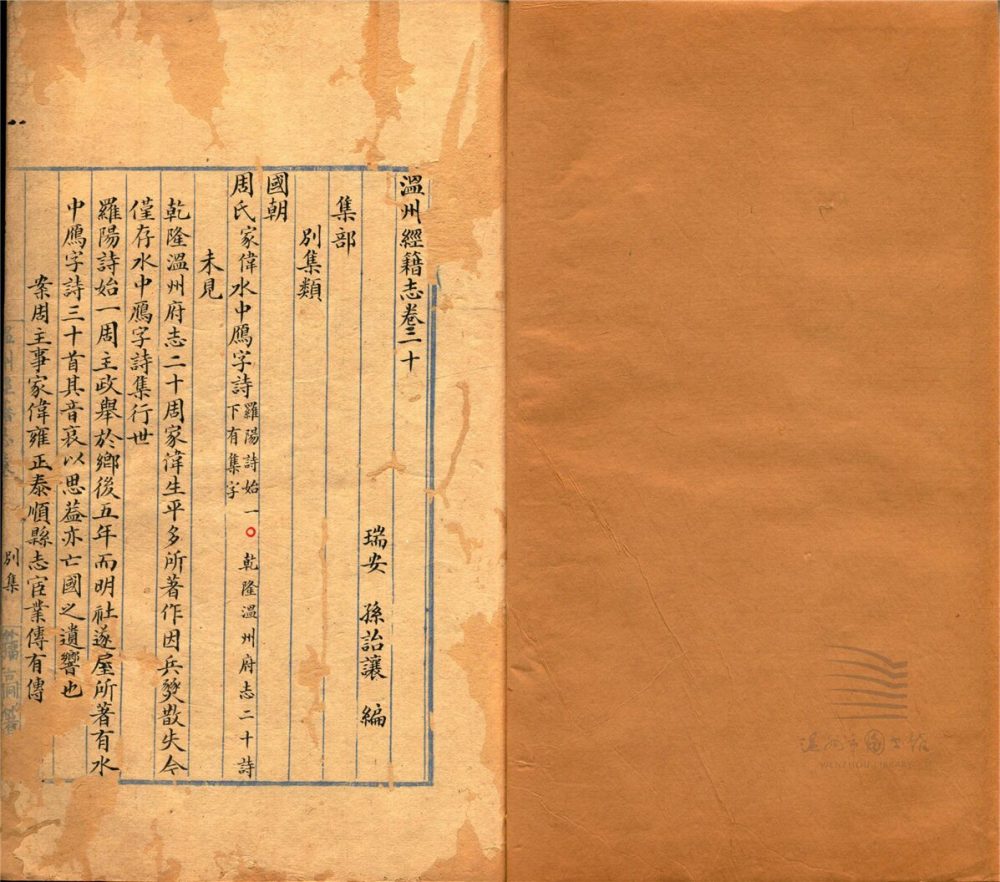 溫州經籍志卷三十
瑞安 孫詒讓 編
集部
別集類
國朝
周氏家偉水中鴈字詩 羅陽詩始一下有集字 ○ 乾隆溫州府志二十詩
未見
乾隆溫州府志二十周家偉生平多所著作因兵燹散失今
僅存水中鴈字詩集行世
羅陽詩始一周主政舉於鄉後五年而明社遂屋所著有水
中鴈字詩三十首其音哀以思葢亦亡國之遺響也
案周主事家偉雍正泰順縣志宦業傳有傳
別集
温州市图书馆
WENZHOU LIBRARY